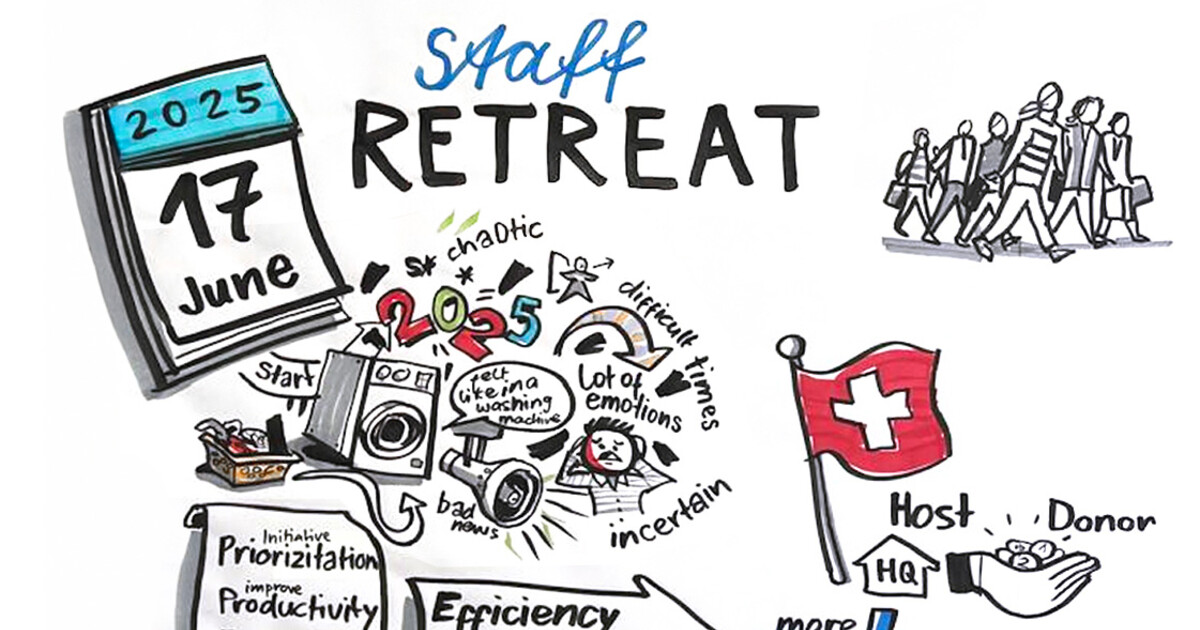 staff
RETREAT
2025
17
June
chaotic
2025
difficult times
start
felt
like in a
washing
machine
Lot of
emotions
bad
news
incertain
Host
Donor
HQ
Initiative
Priorizitation
improve
Productivity
Efficiency
more